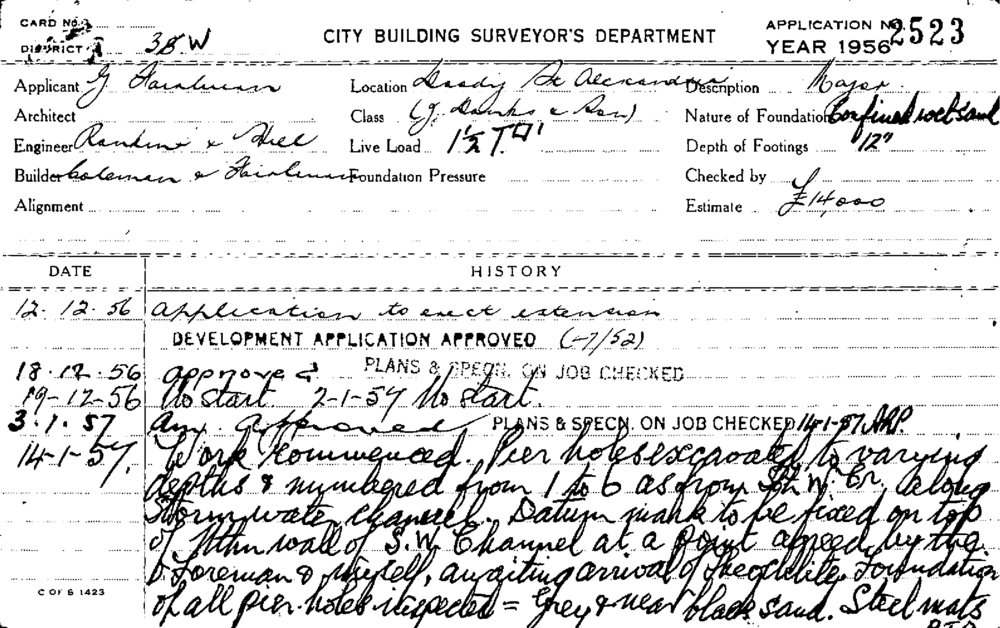 CARD No. 3
DISTRICT 3B W CITY BUILDING SURVEYOR'S DEPARTMENT APPLICATION No. 2523
YEAR 1956
Applicant G Fairlman Location Doody St Alexandria Description Major
Architect Class (J. Danks & Son) Nature of Foundation Confined wet sand
Engineer Rankine & Hill Live Load 1½ T □' Depth of Footings "12"
Builder Coleman & Foundation Pressure Checked by
Alignment Estimate £14,000
DATE HISTORY
12. 12. 56 Application to erect extension
DEVELOPMENT APPLICATION APPROVED (-7/52)
18.12.56 approved PLANS & SPECN. ON JOB CHECKED
19-12-56 No start 2-1-57 No start.
3.1.57 Am. Approved PLANS & SPECN. ON JOB CHECKED 14-1-57
14-1-57. Work commenced. Pier holes excavated to varying
depths & numbered from 1 to 6 as from Sth W. Cr. along
Stormwater channel. Datum mark to be fixed on top
of Nthn wall of S.W. Channel at a point agreed by the
Foreman & myself, awaiting arrival of theodolite. Foundation
of all pier holes inspected = Grey & near black sand. Steel mats
P.T.O.
C OF S 1423